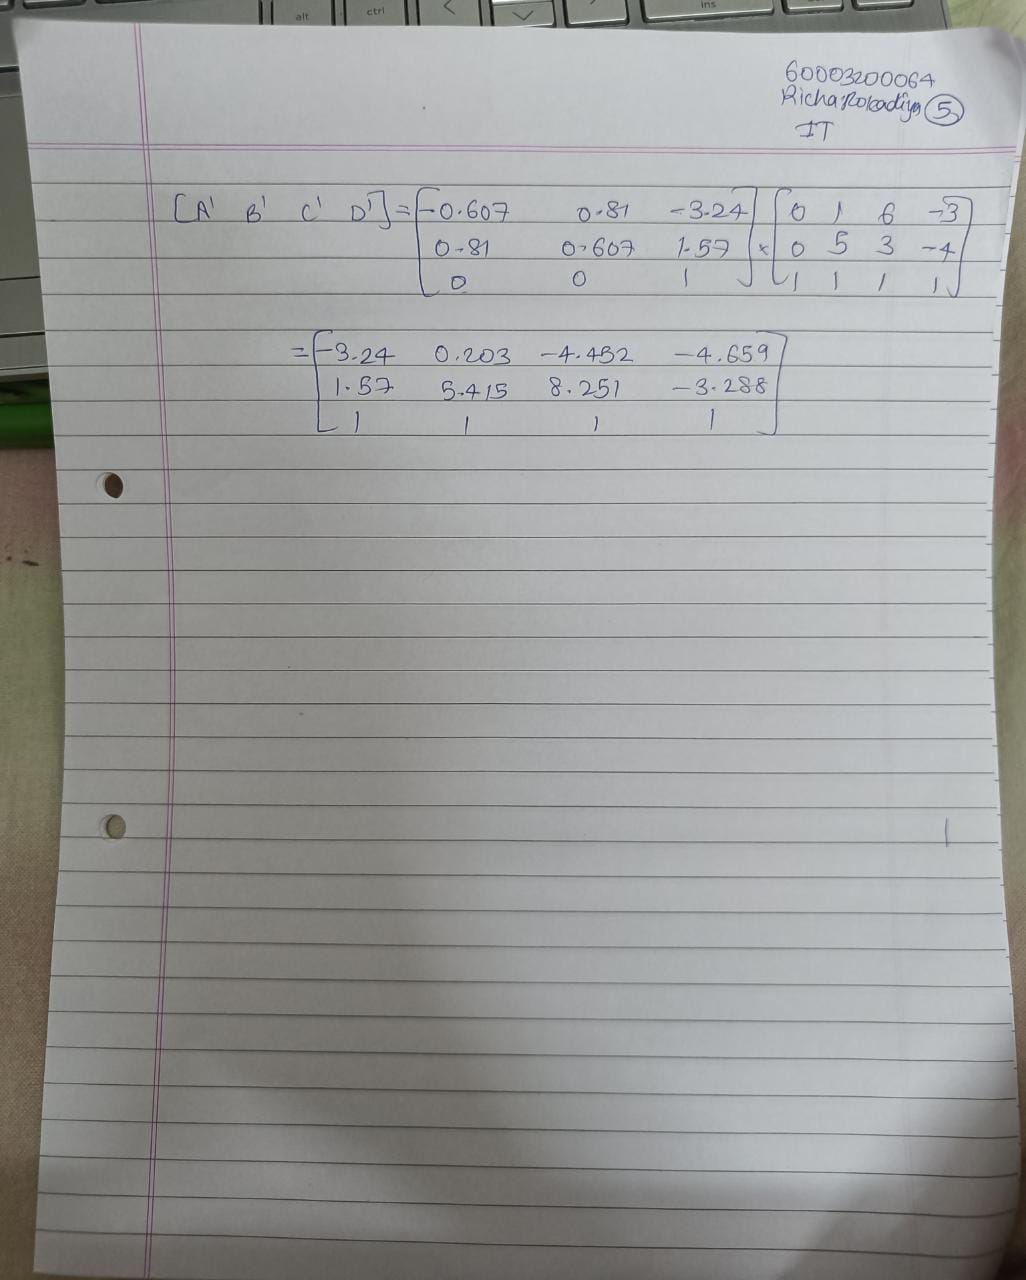 alt ctrl < ins
60003200064
Richa Rokadiya 5
IT
[A' B' C' D'] = [-0.607 0.81 -3.24] [0 1 6 -3]
0.81 0.607 1.57 × 0 5 3 -4
0 0 1 1 1 1 1
= [-3.24 0.203 -4.452 -4.659]
1.57 5.415 8.251 -3.288
1 1 1 1